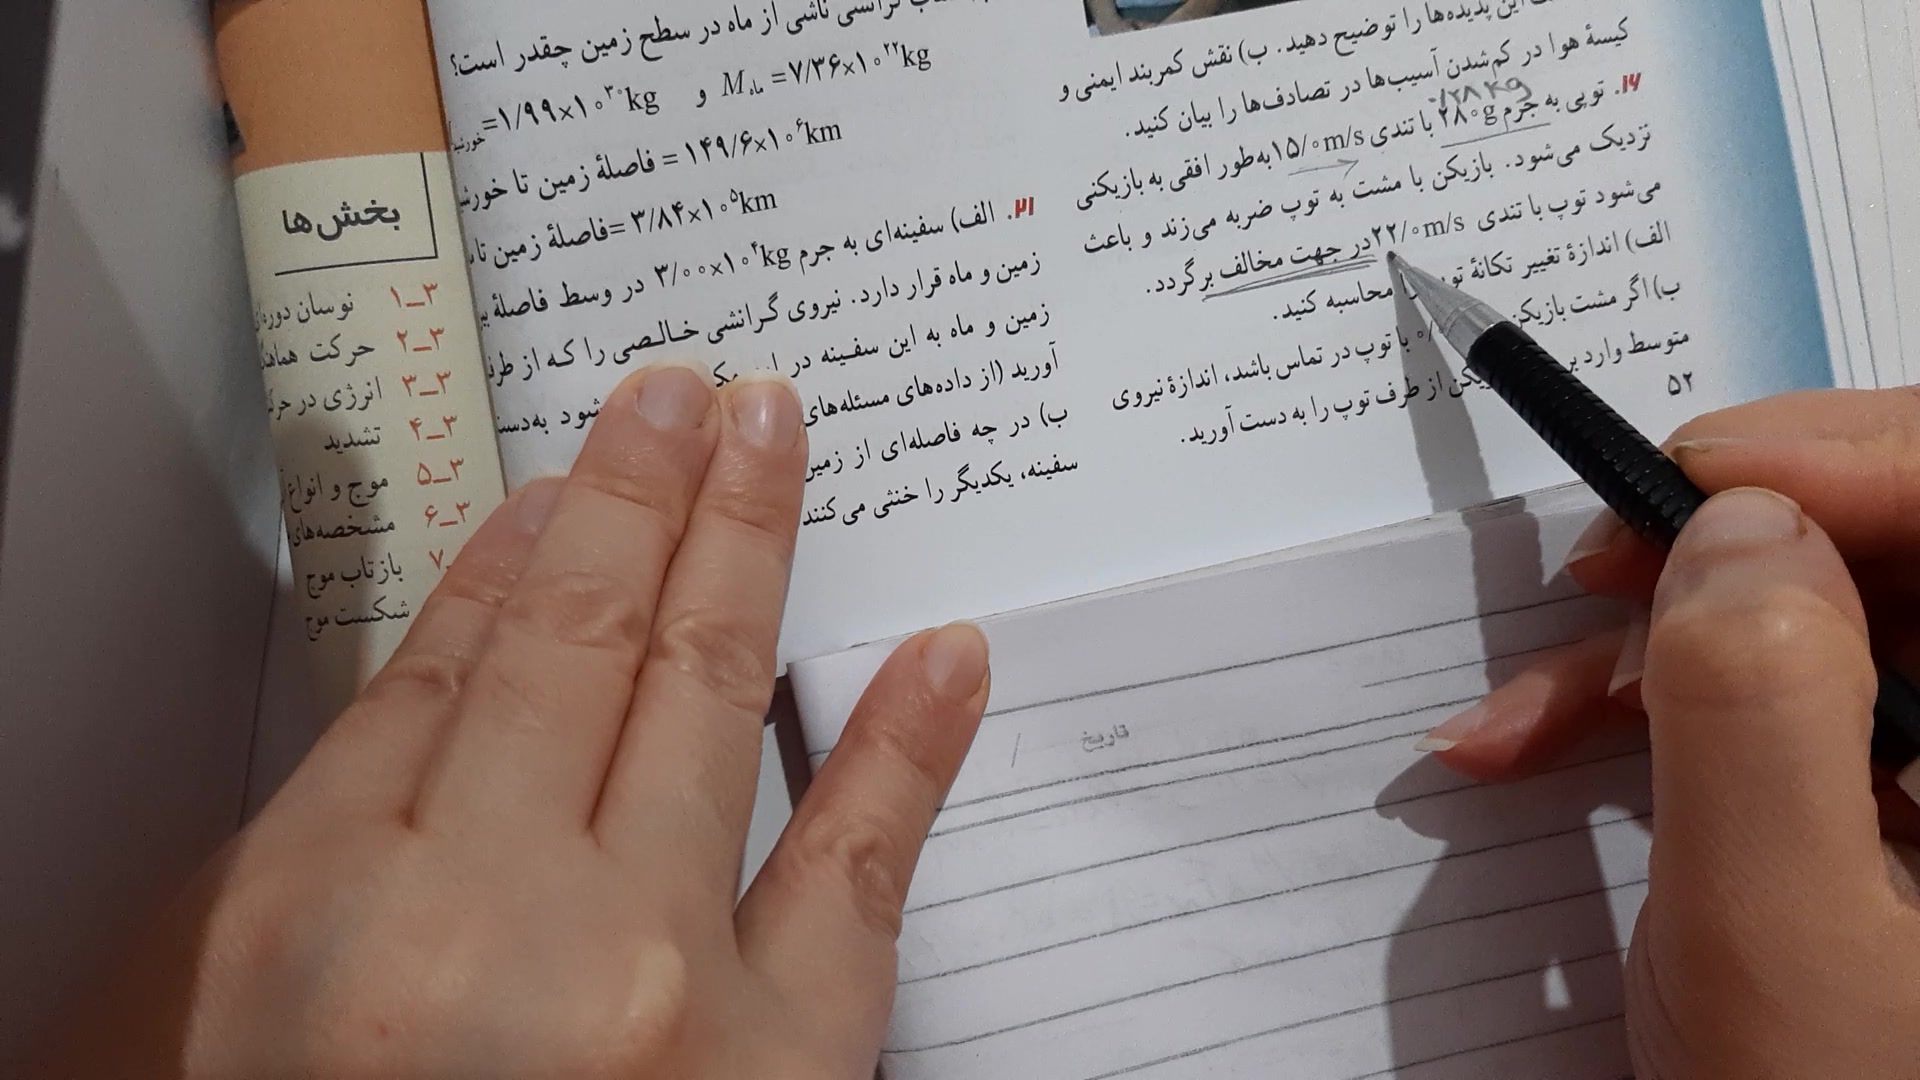 این پدیده‌ها را توضیح دهید. ب) نقش کمربند ایمنی و
کیسهٔ هوا در کم‌شدن آسیب‌ها در تصادف‌ها را بیان کنید.
۰/۲۸ kg
۱۶. توپی به جرم ۲۸۰g با تندی ۱۵/۰m/s به‌طور افقی به بازیکنی
نزدیک می‌شود. بازیکن با مشت به توپ ضربه می‌زند و باعث
می‌شود توپ با تندی ۲۲/۰m/s در جهت مخالف برگردد.
الف) اندازهٔ تغییر تکانهٔ محاسبه کنید.
ب) اگر مشت بازیکن با توپ در تماس باشد، اندازهٔ نیروی
متوسط وارد از طرف توپ را به دست آورید.
۵۲
ناشی از ماه در سطح زمین چقدر است؟
=۱/۹۹×۱۰^۳۰kg و M ماه =۷/۳۶×۱۰^۲۲kg
۱۴۹/۶×۱۰^۶km = فاصلهٔ زمین تا
۳/۸۴×۱۰^۵km =فاصلهٔ زمین تا
۲۱. الف) سفینه‌ای به جرم ۳/۰۰×۱۰^۴kg در وسط فاصلهٔ
زمین و ماه قرار دارد. نیروی گرانشی خالصی را که از
زمین و ماه به این سفینه در شود
آورید (از داده‌های مسئله‌های
ب) در چه فاصله‌ای از
سفینه، یکدیگر را خنثی می‌کنند
بخش‌ها
۳_۱ نوسان
۳_۲ حرکت
۳_۳ انرژی در
۳_۴ تشدید
۳_۵ موج و انواع
۳_۶ مشخصه‌های
_۷ بازتاب موج
شکست موج
تاریخ /